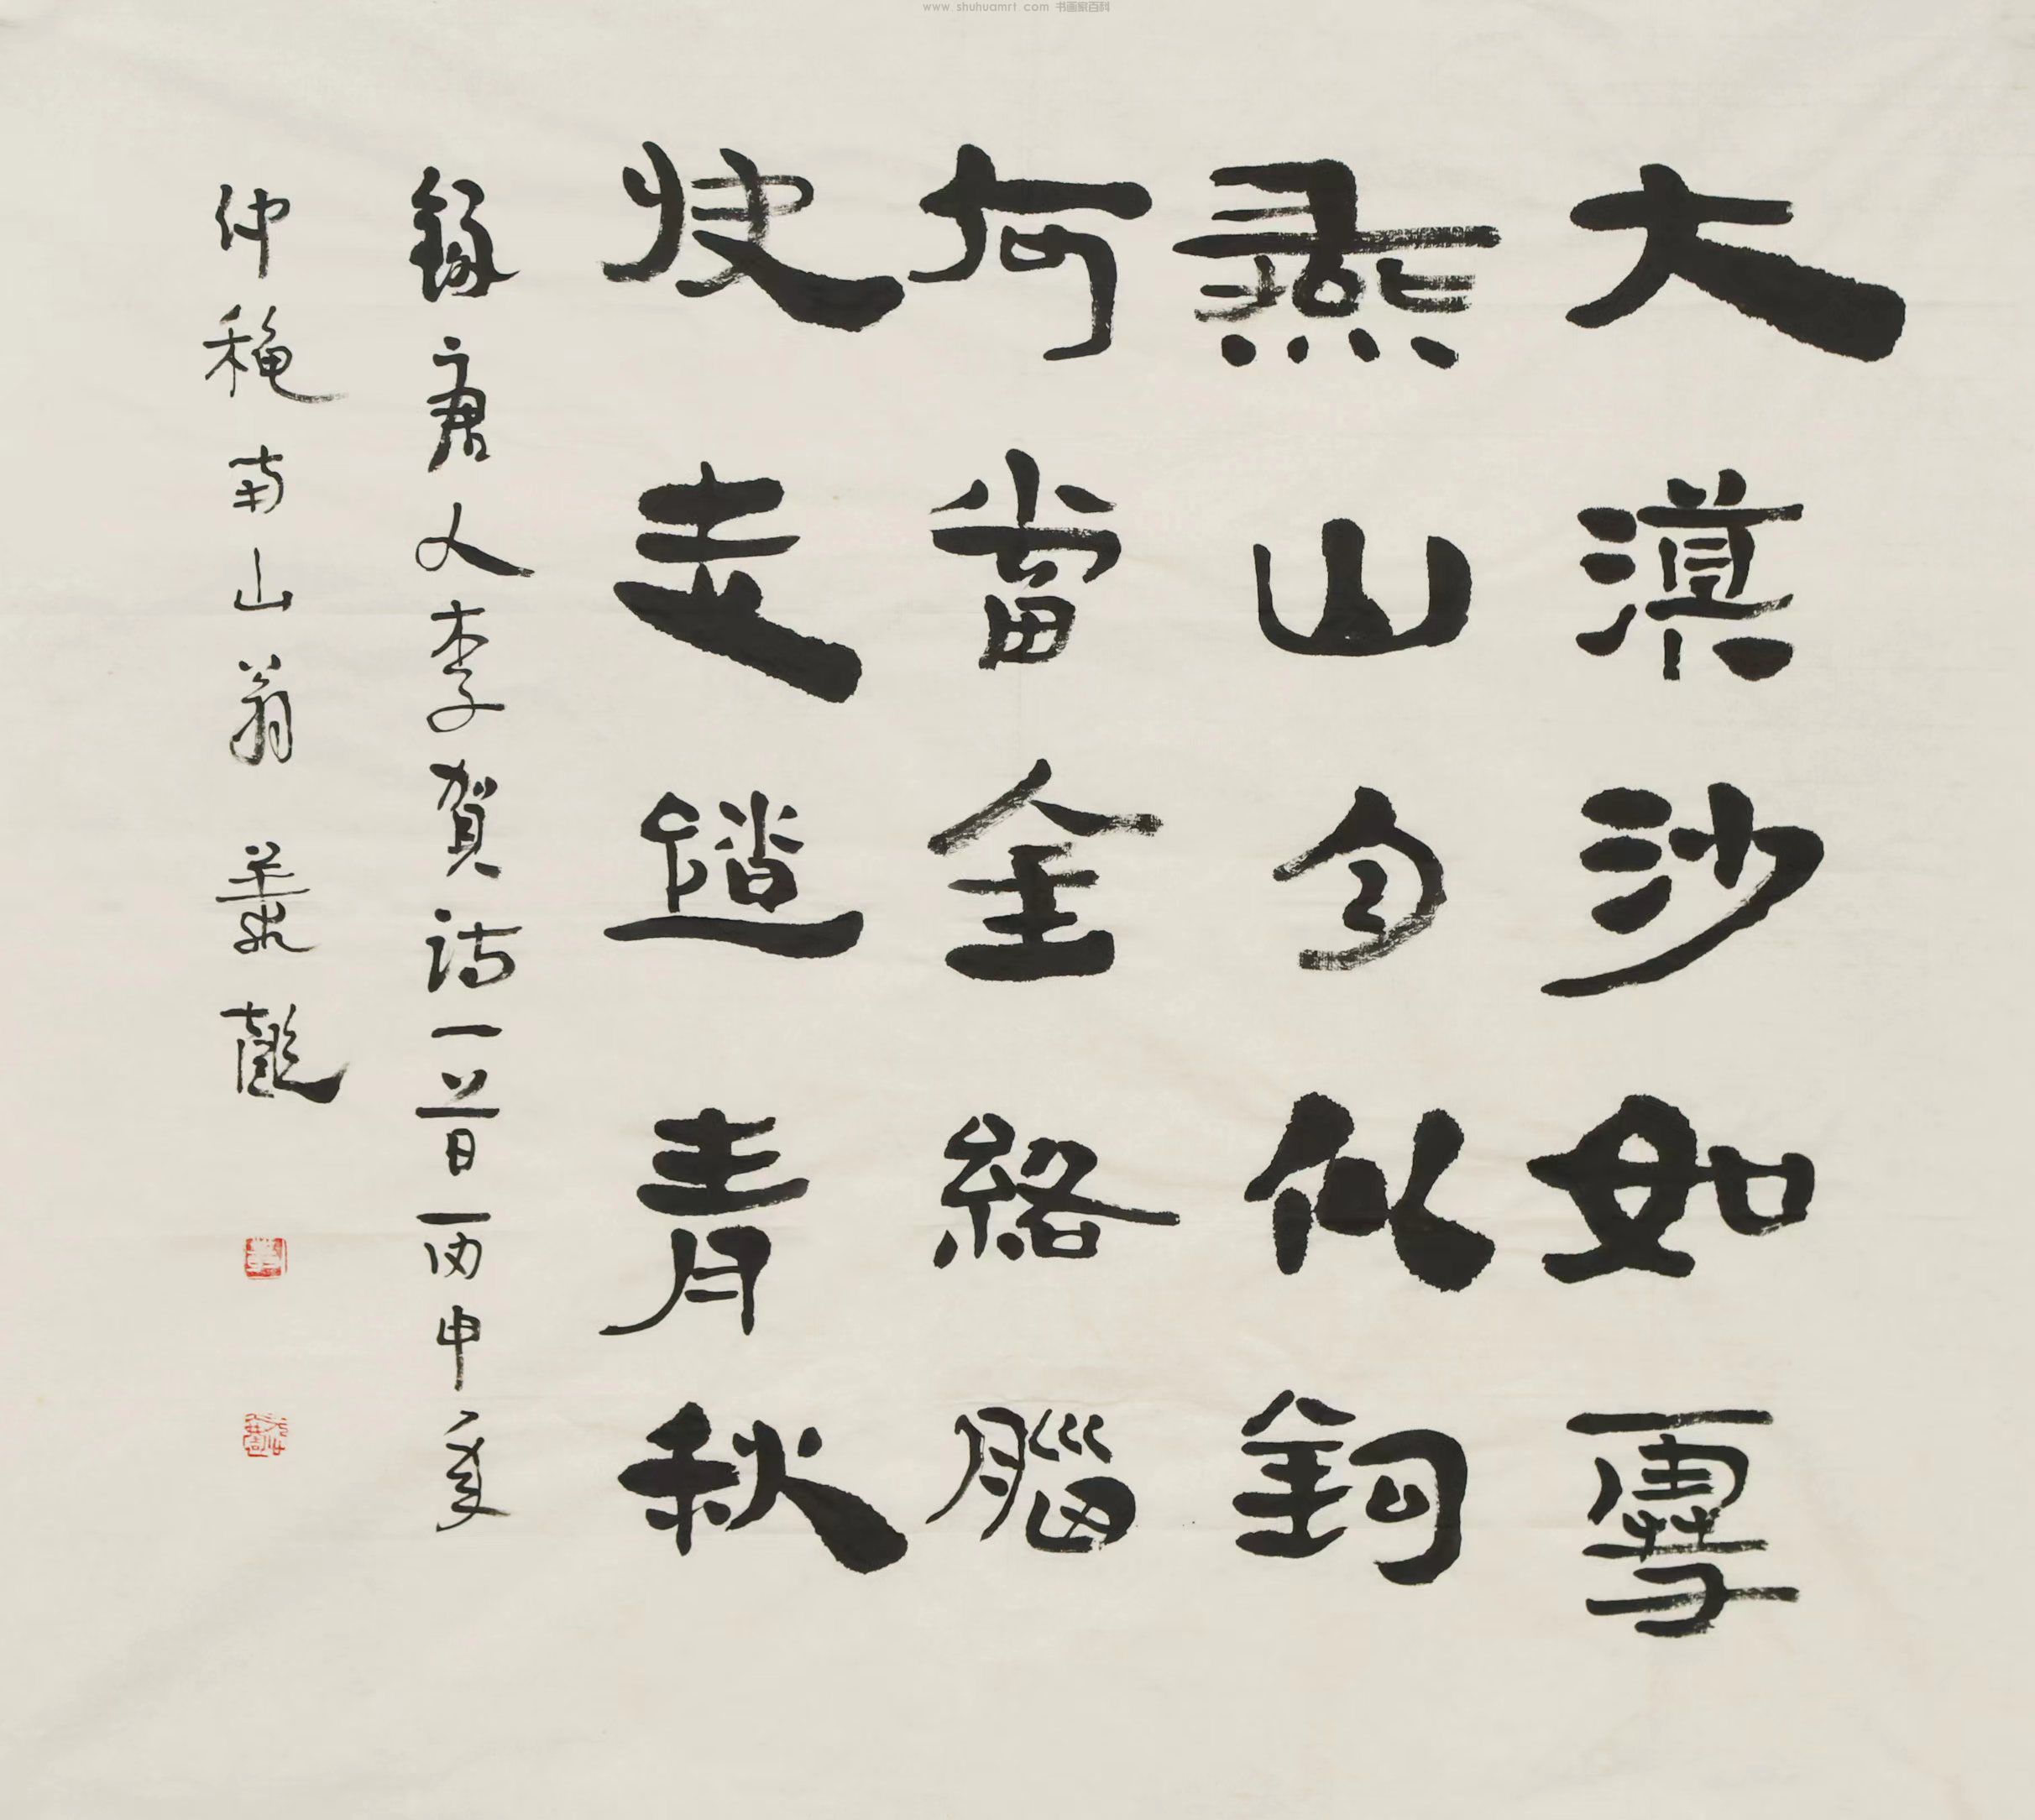 www.shuhuamrt com 书画家百科
大漠沙如雪
燕山月似鉤
何當金絡腦
快走踏青秋
錄唐人李賀詩一首丙申年
仲穐南山翁